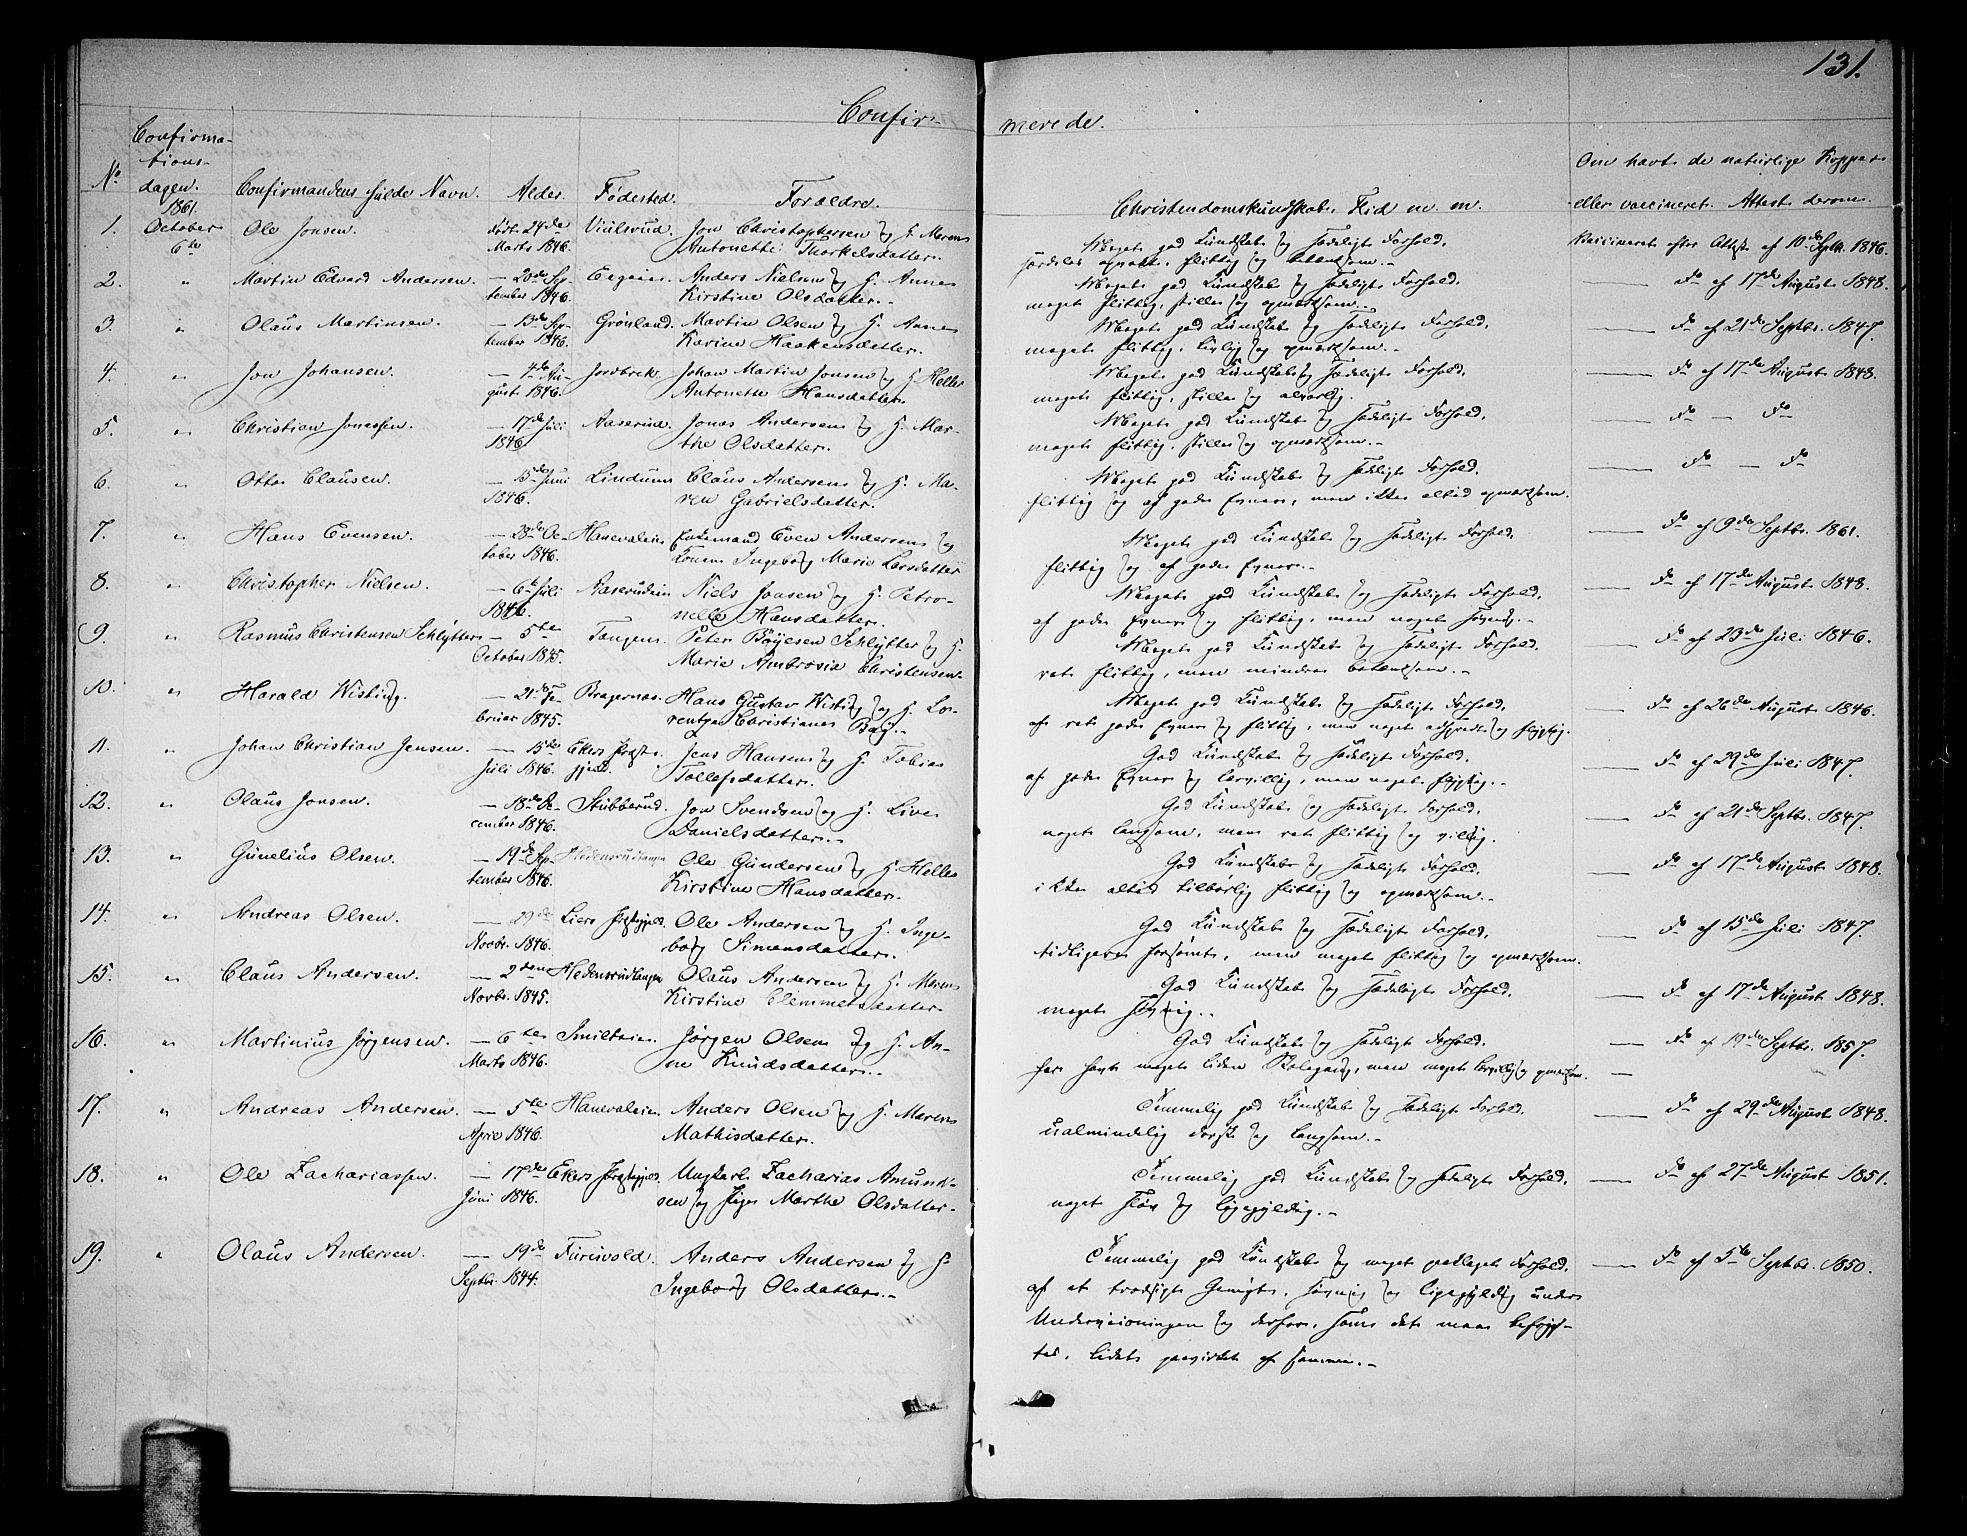 131.
Confir-
merede.
No
Confirma-
tions-
dagen.
1861.
Confirmandens fulde Navn.
Alder.
Fødested.
Forældre.
Christendomskundskab, Flid m. m.
Om havt de naturlige Kopper
eller vaccineret. Attest derom.
1. October Ole Jonsen. født 24de Viulsrud. Jon Christophersen og H. Maren
6te Marts 1846. Antonette Thorkelsdatter.
Meget god Kundskab og sædeligt Forhold,
flittig og
Vaccineret efter Attest af 10de Septbr. 1846.
2. " Martin Edvard Andersen. — 20de Sep- Anders Nielsen og H. Anne
tember 1846. Kirstine Olsdatter.
Meget god Kundskab og sædeligt Forhold,
meget flittig, stille og opmærksom.
— Do af 17de August 1848.
3. " Olaus Martinsen. — 13de Sep- Grønland. Martin Olsen og H. Anne
tember 1846. Karine Haakensdatter.
Meget god Kundskab og sædeligt Forhold,
meget flittig, livlig og opmærksom.
— Do af 21de Septbr. 1847.
4. " Jon Johansen. — 4de Au- Johan Martin Jonsen og H. Helle
gust 1846. Antonette Hansdatter.
Meget god Kundskab og sædeligt Forhold,
meget flittig, stille og alvorlig.
— Do af 17de August 1848.
5. " Christian Jonassen. — 17de Juli Aaserud. Jonas Andersen og H. Mar-
1846. the Olsdatter.
Meget god Kundskab og sædeligt Forhold,
meget flittig, stille og opmærksom.
— Do — Do
6. " Otto Clausen. — 15de Juni Lindum Claus Andersen og H. Ma-
1846. ren Gabrielsdatter.
Meget god Kundskab og sædeligt Forhold,
flittig og af gode Evner, men ikke altid opmærksom.
— Do — Do
7. " Hans Evensen. — 23de Oc- Hanevaleie Enkemand Even Andersen og
tober 1846. Konen Ingeborg Marie Larsdatter
Meget god Kundskab og sædeligt Forhold,
flittig og af gode Evner.
— Do af 9de Septbr. 1861.
8. " Christopher Nielsen. — 6te Juli Aaserudeie Niels Jonsen og H. Petro-
1846. nelle Hansdatter.
Meget god Kundskab og sædeligt Forhold,
af gode Evner og flittig, men noget
— Do af 17de August 1848.
9. " Rasmus Christensen Schlytter — 5te Tangen. Peter Bøyesen Schlytter og H.
October 1845. Marie Ambrosia Christensen.
Meget god Kundskab og sædeligt Forhold,
ret flittig, men mindre
— Do af 23de Juli 1846.
10. " Harald Wisting. — 21de Fe- Bragernæs. Hans Gustav Wisting og H. Lo-
bruar 1845. rentze Christiane Bag.
Meget god Kundskab og sædeligt Forhold,
af ret gode Evner og flittig, men noget adspredt og flygtig.
— Do af 26de August 1846.
11. " Johan Christian Jensen. — 15de Ekers Præste- Jens Hansen og H. Tobia
Juli 1846. gjeld. Tollefsdatter.
God Kundskab og sædeligt Forhold,
af gode Evner og lærvillig, men noget flygtig.
— Do af 29de Juli 1847.
12. " Olaus Jonsen. — 18de De- Stubberud. Jon Svendsen og H. Live
cember 1846. Danielsdatter.
God Kundskab og sædeligt Forhold,
noget langsom, men ret flittig og villig.
— Do af 21de Septbr. 1847.
13. " Gunelius Olsen. — 19de Sep- Hedensrudtangen Ole Gundersen og H. Helle
tember 1846. Kirstine Hansdatter.
God Kundskab og sædeligt Forhold,
ikke altid tilbørlig flittig og opmærksom.
— Do af 17de August 1848.
14. " Andreas Olsen. — 29de Liers Præstegjeld. Ole Andersen og H. Inge-
Novbr. 1846. borg Simensdatter.
God Kundskab og sædeligt Forhold,
tidligere forsømt, men meget flittig og opmærksom.
— Do af 15de Juli 1847.
15. " Claus Andersen. — 2den Hedensrudtangen Olaus Andersen og H. Maren
Novbr. 1845. Kirstine Clemmetsdatter.
God Kundskab og sædeligt Forhold,
meget
— Do af 17de August 1848.
16. " Martinius Jørgensen. — 6te Smilteeie. Jørgen Olsen og H. An-
Marts 1846. ne Knudsdatter.
God Kundskab og sædeligt Forhold,
har havt meget liden Skolegang, men meget lærvillig og opmærksom.
— Do af 19de Septbr. 1857.
17. " Andreas Andersen. — 5te Hanevaleie. Anders Olsen og H. Maren
April 1846. Mathisdatter.
Temmelig god Kundskab og sædeligt Forhold,
ualmindelig dorsk og langsom.
— Do af 29de August 1848.
18. " Ole Zachariassen. — 17de Ekers Præstegjeld. Ungkarl Zacharias Amund-
Juni 1846. sen og Pige Marthe Olsdatter.
Temmelig god Kundskab og sædeligt Forhold,
noget sløv og ligegyldig.
— Do af 27de August 1851.
19. " Olaus Andersen. — 19de Furuvold. Anders Andersen og H.
Septbr. 1844. Ingeborg Olsdatter.
Temmelig god Kundskab og meget Forhold,
af et trodsigt Gemyt, og ligegyldig under
Underviisningen og derfor, som det maa befryg-
tes, lidet paavirket af samme.
— Do af 5te Septbr. 1850.